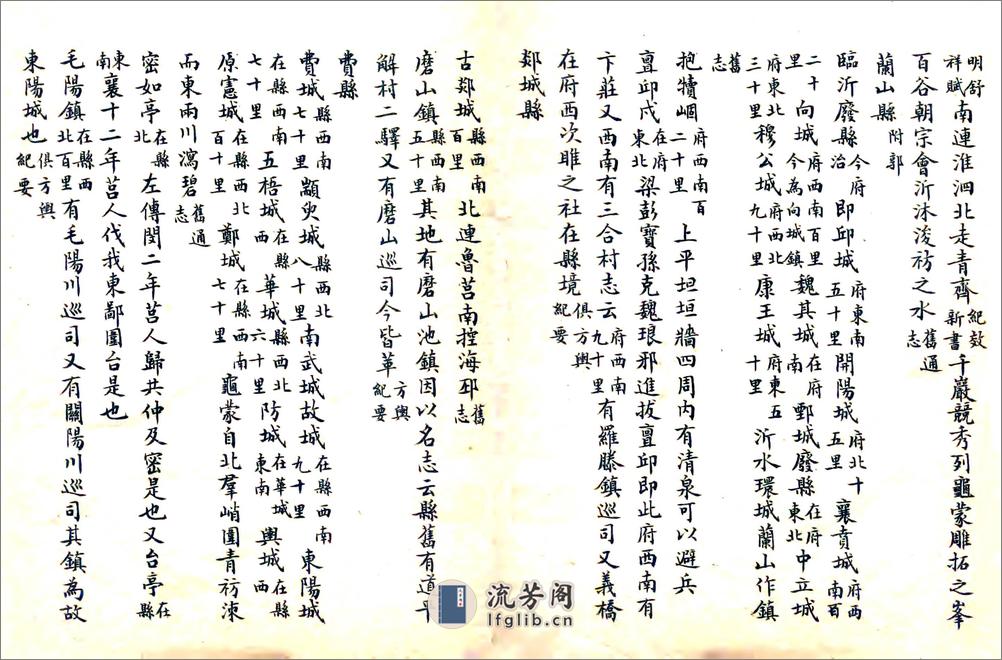 明舒祥賦南連淮泗北走青齊紀效新書千巖競秀列龜蒙雕拓之峯
百谷朝宗會沂沭浚祊之水舊通志
蘭山縣附郭
臨沂廢縣今府治即邱城府東南五十里開陽城府北十五里襄賁城府西南百
二十里向城府西南百里今為向城鎮魏其城在府南鄄城廢縣在府東北中立城
府東北三十里穆公城府西北九十里康王城府東五十里沂水環城蘭山作鎮
舊志
抱犢崮府西南百二十里上平坦垣牆四周内有清泉可以避兵
亶邱戍在府東北梁彭寶孫克魏琅邪進拔亶邱即此府西南有
卞莊又西南有三合村志云府西南九十里有羅滕鎮巡司又義橋
在府西次雎之社在縣境俱方輿紀要
郯城縣
古郯城縣西南百里北連魯莒南控海邳舊志
磨山鎮縣西南五十里其地有磨山池鎮因以名志云縣舊有道平
解村二驛又有磨山巡司今皆革方輿紀要
費縣
費城縣西南七十里顓臾城縣西北八十里南武城故城在縣西南九十里東陽城
在縣西南七十里五梧城在縣西華城縣西北六十里防城在華城東南輿城在縣西
原憲城在縣西北百十里鄭城在縣西南七十里龜蒙自北羣峭圍青祊涑
而東兩川瀉碧舊通志
密如亭在縣北左傳閔二年莒人歸共仲及密是也又台亭在縣
東南襄十二年莒人伐我東鄙圍台是也
毛陽鎮在縣西北百里有毛陽川巡司又有關陽川巡司其鎮為故
東陽城也俱方輿紀要
流芳阁
lfglib.cn